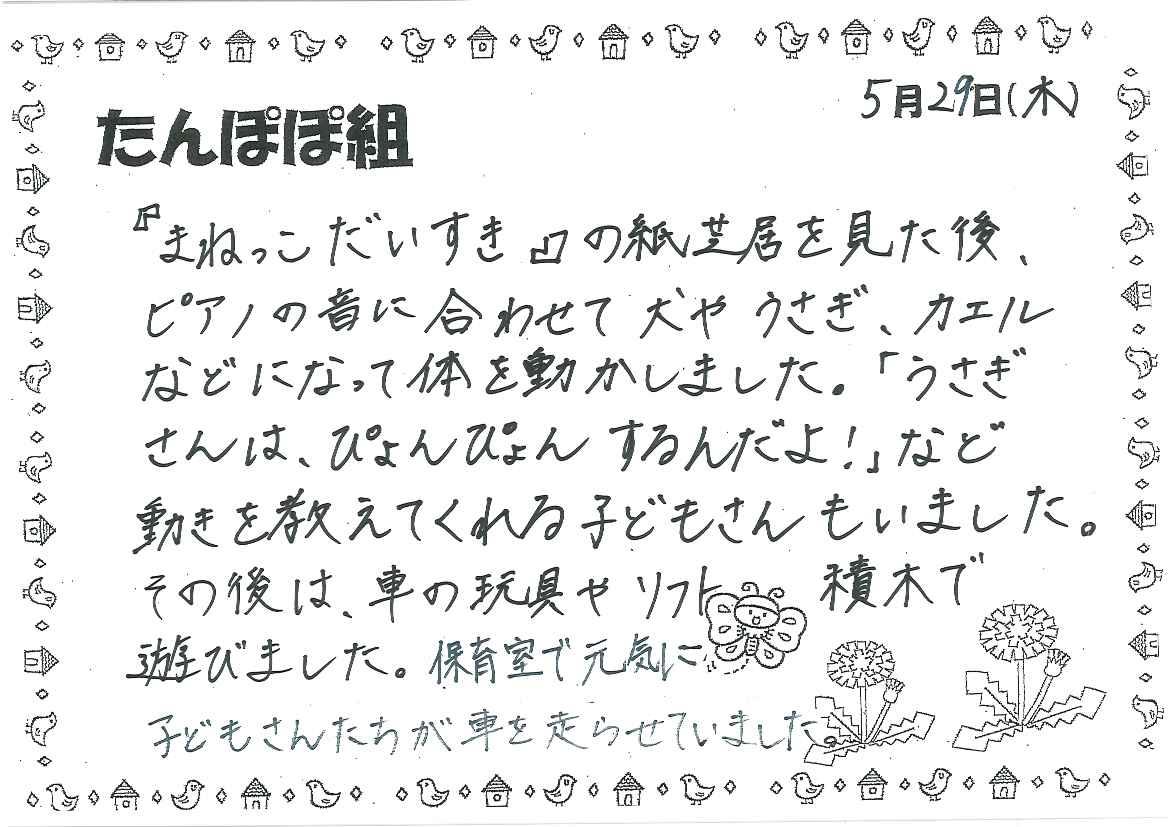 5月29日(木)
たんぽぽ組
『まねっこだいすき』の紙芝居を見た後、
ピアノの音に合わせて犬やうさぎ、カエル
などになって体を動かしました。「うさぎ
さんは、ぴょんぴょんするんだよ！」など
動きを教えてくれる子どもさんもいました。
その後は、車の玩具やソフト積木で
遊びました。保育室で元気に
子どもさんたちが車を走らせていました。